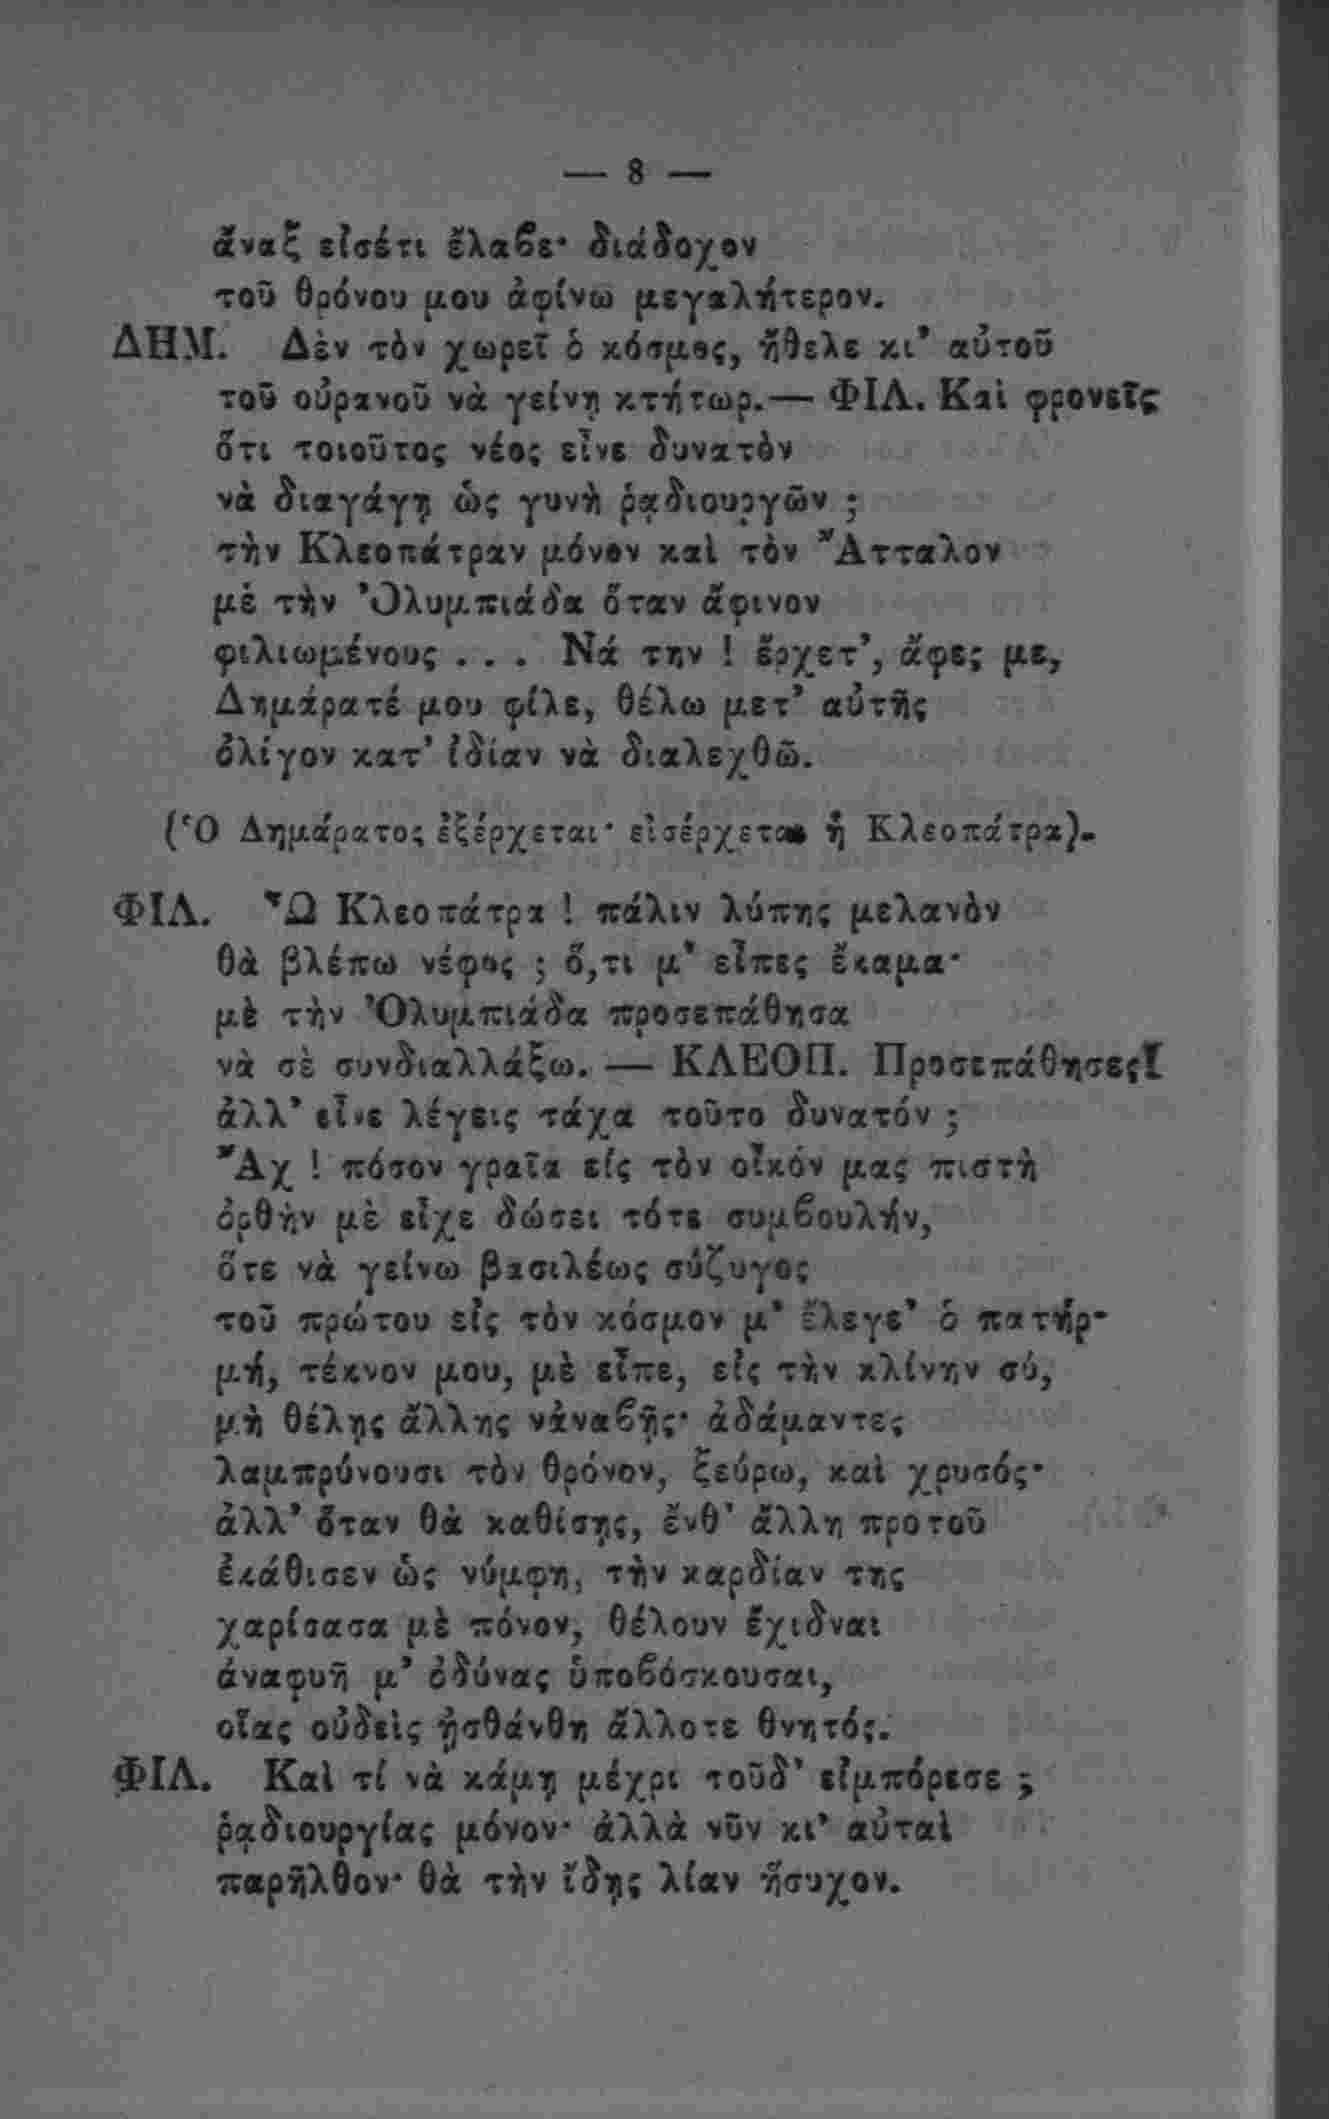 — 8 —
ἄναξ εἰσέτι ἔλαβε· διάδοχον
τοῦ θρόνου μου ἀφίνω μεγαλήτερον.
ΔΗΜ. Δὲν τὸν χωρεῖ ὁ κόσμος, ἤθελε κι' αὐτοῦ
τοῦ οὐρανοῦ νὰ γείνῃ κτήτωρ.— ΦΙΛ. Καὶ φρονεῖς
ὅτι τοιοῦτος νέος εἶνε δυνατὸν
νὰ διαγάγῃ ὡς γυνὴ ῥᾳδιουργῶν ;
τὴν Κλεοπάτραν μόνον καὶ τὸν Ἄτταλον
μὲ τὴν Ὀλυμπιάδα ὅταν ἄφινον
φιλιωμένους . . . Νά την ! ἔρχετ', ἄφες με,
Δημάρατέ μου φίλε, θέλω μετ' αὐτῆς
ὀλίγον κατ' ἰδίαν νὰ διαλεχθῶ.
(Ὁ Δημάρατος ἐξέρχεται· εἰσέρχεται ἡ Κλεοπάτρα).
ΦΙΛ. Ὦ Κλεοπάτρα ! πάλιν λύπης μελανὸν
θὰ βλέπω νέφος ; ὅ,τι μ' εἶπες ἔκαμα·
μὲ τὴν Ὀλυμπιάδα προσεπάθησα
νὰ σὲ συνδιαλλάξω. — ΚΛΕΟΠ. Προσεπάθησες!
ἀλλ' εἶνε λέγεις τάχα τοῦτο δυνατόν ;
Ἄχ ! πόσον γραῖα εἰς τὸν οἶκόν μας πιστὴ
ὀρθὴν μὲ εἶχε δώσει τότε συμβουλήν,
ὅτε νὰ γείνω βασιλέως σύζυγος
τοῦ πρώτου εἰς τὸν κόσμον μ' ἔλεγε' ὁ πατήρ·
μή, τέκνον μου, μὲ εἶπε, εἰς τὴν κλίνην σύ,
μὴ θέλῃς ἄλλης νἀναβῇς· ἀδάμαντες
λαμπρύνουσι τὸν θρόνον, ξεύρω, καὶ χρυσός·
ἀλλ' ὅταν θὰ καθίσῃς, ἔνθ' ἄλλη προτοῦ
ἐκάθισεν ὡς νύμφη, τὴν καρδίαν της
χαρίσασα μὲ πόνον, θέλουν ἔχιδναι
ἀναφυῆ μ' ὀδύνας ὑποβόσκουσαι,
οἵας οὐδεὶς ᾐσθάνθη ἄλλοτε θνητός.
ΦΙΛ. Καὶ τί νὰ κάμῃ μέχρι τοῦδ' εἰμπόρεσε ;
ῥᾳδιουργίας μόνον· ἀλλὰ νῦν κι' αὐταὶ
παρῆλθον· θὰ τὴν ἴδῃς λίαν ἥσυχον.